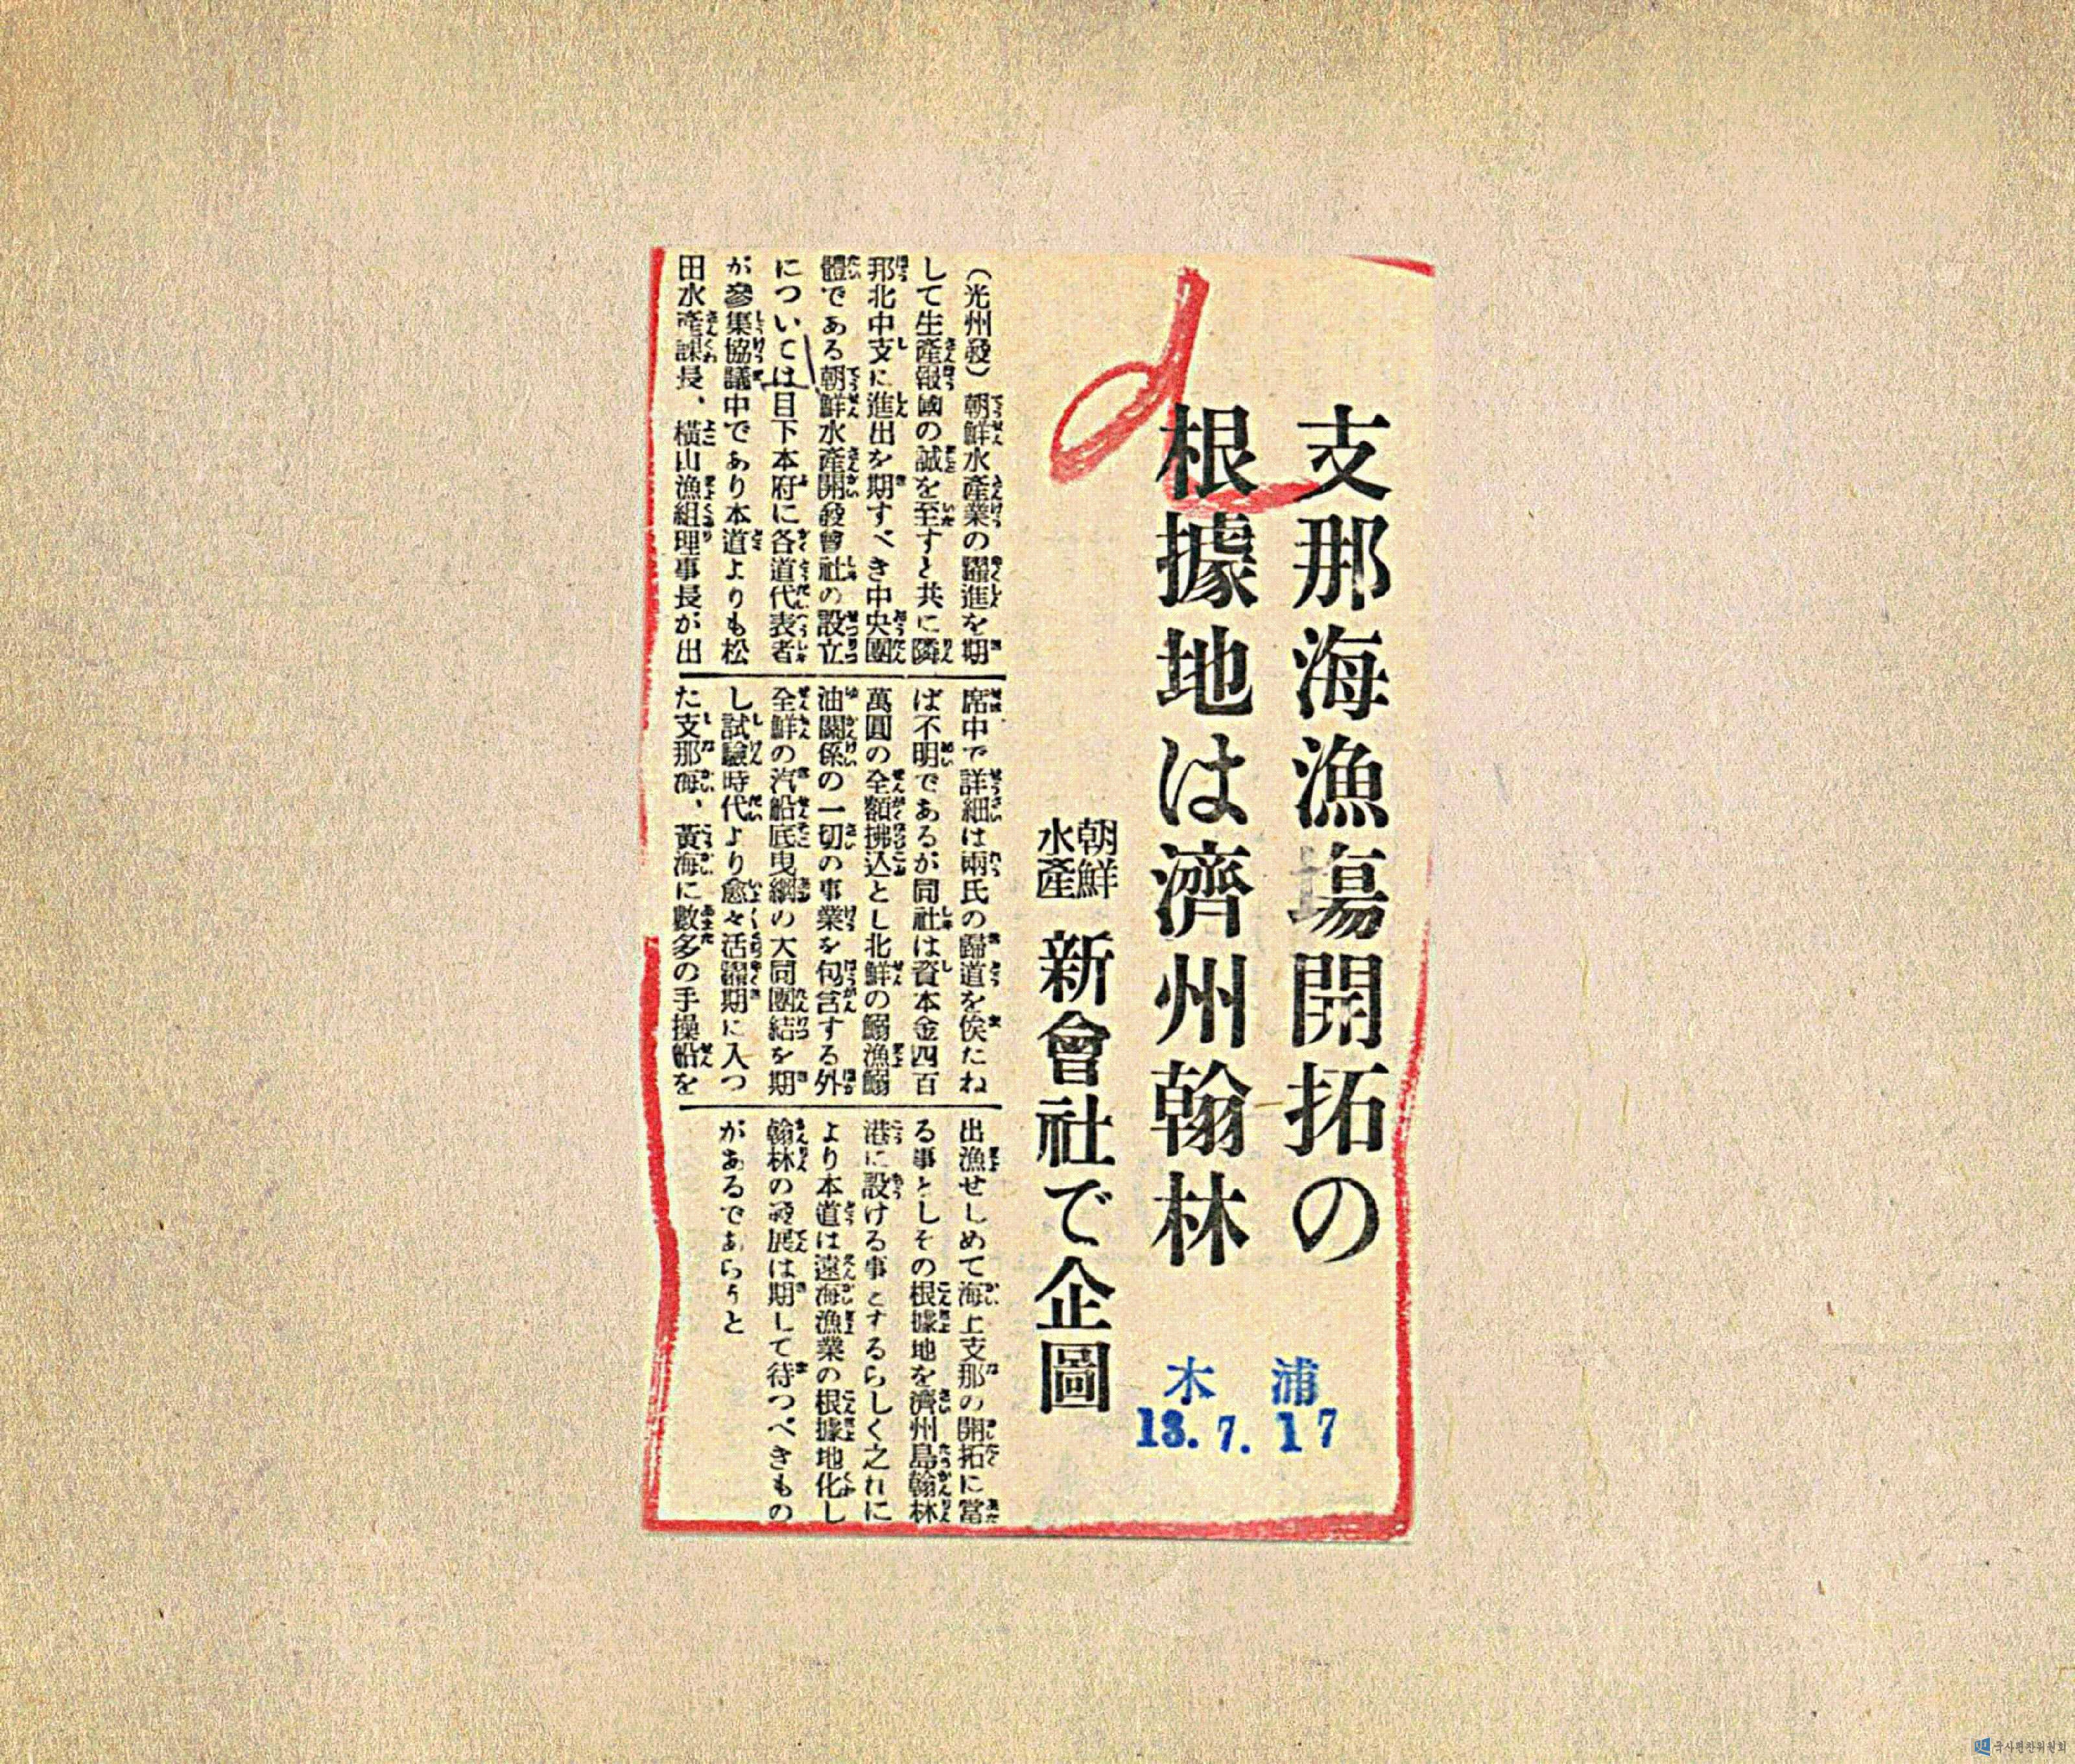 支那海漁場開拓の
根據地は濟州翰林
朝鮮
水產
新會社で企圖
木浦
13.7.17
(光州發)朝鮮水產業の躍進を期
して生產報國の誠を至すと共に隣
邦北中支に進出を期すべき中央團
體である朝鮮水產開發會社の設立
については目下本府に各道代表者
が參集協議中であり本道よりも松
田水產課長、橫山漁組理事長が出
席中で詳細は兩氏の歸道を俟たね
ば不明であるが同社は資本金四百
萬圓の全額拂込とし北鮮の鰯漁鰯
油關係の一切の事業を包含する外
全鮮の汽船底曳網の大同團結を期
し試驗時代より愈々活躍期に入つ
た支那海、黃海に數多の手操船を
出漁せしめて海上支那の開拓に當
る事としその根據地を濟州島翰林
港に設ける事とするらしく之れに
より本道は遠海漁業の根據地化し
翰林の發展は期して待つべきもの
があるであらうと
국사편찬위원회